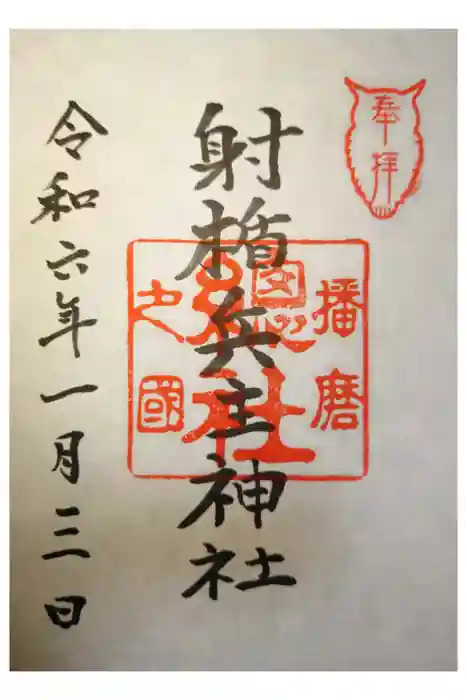 奉拝
射楯兵主神社
播磨
総社
之國
令和六年一月三日